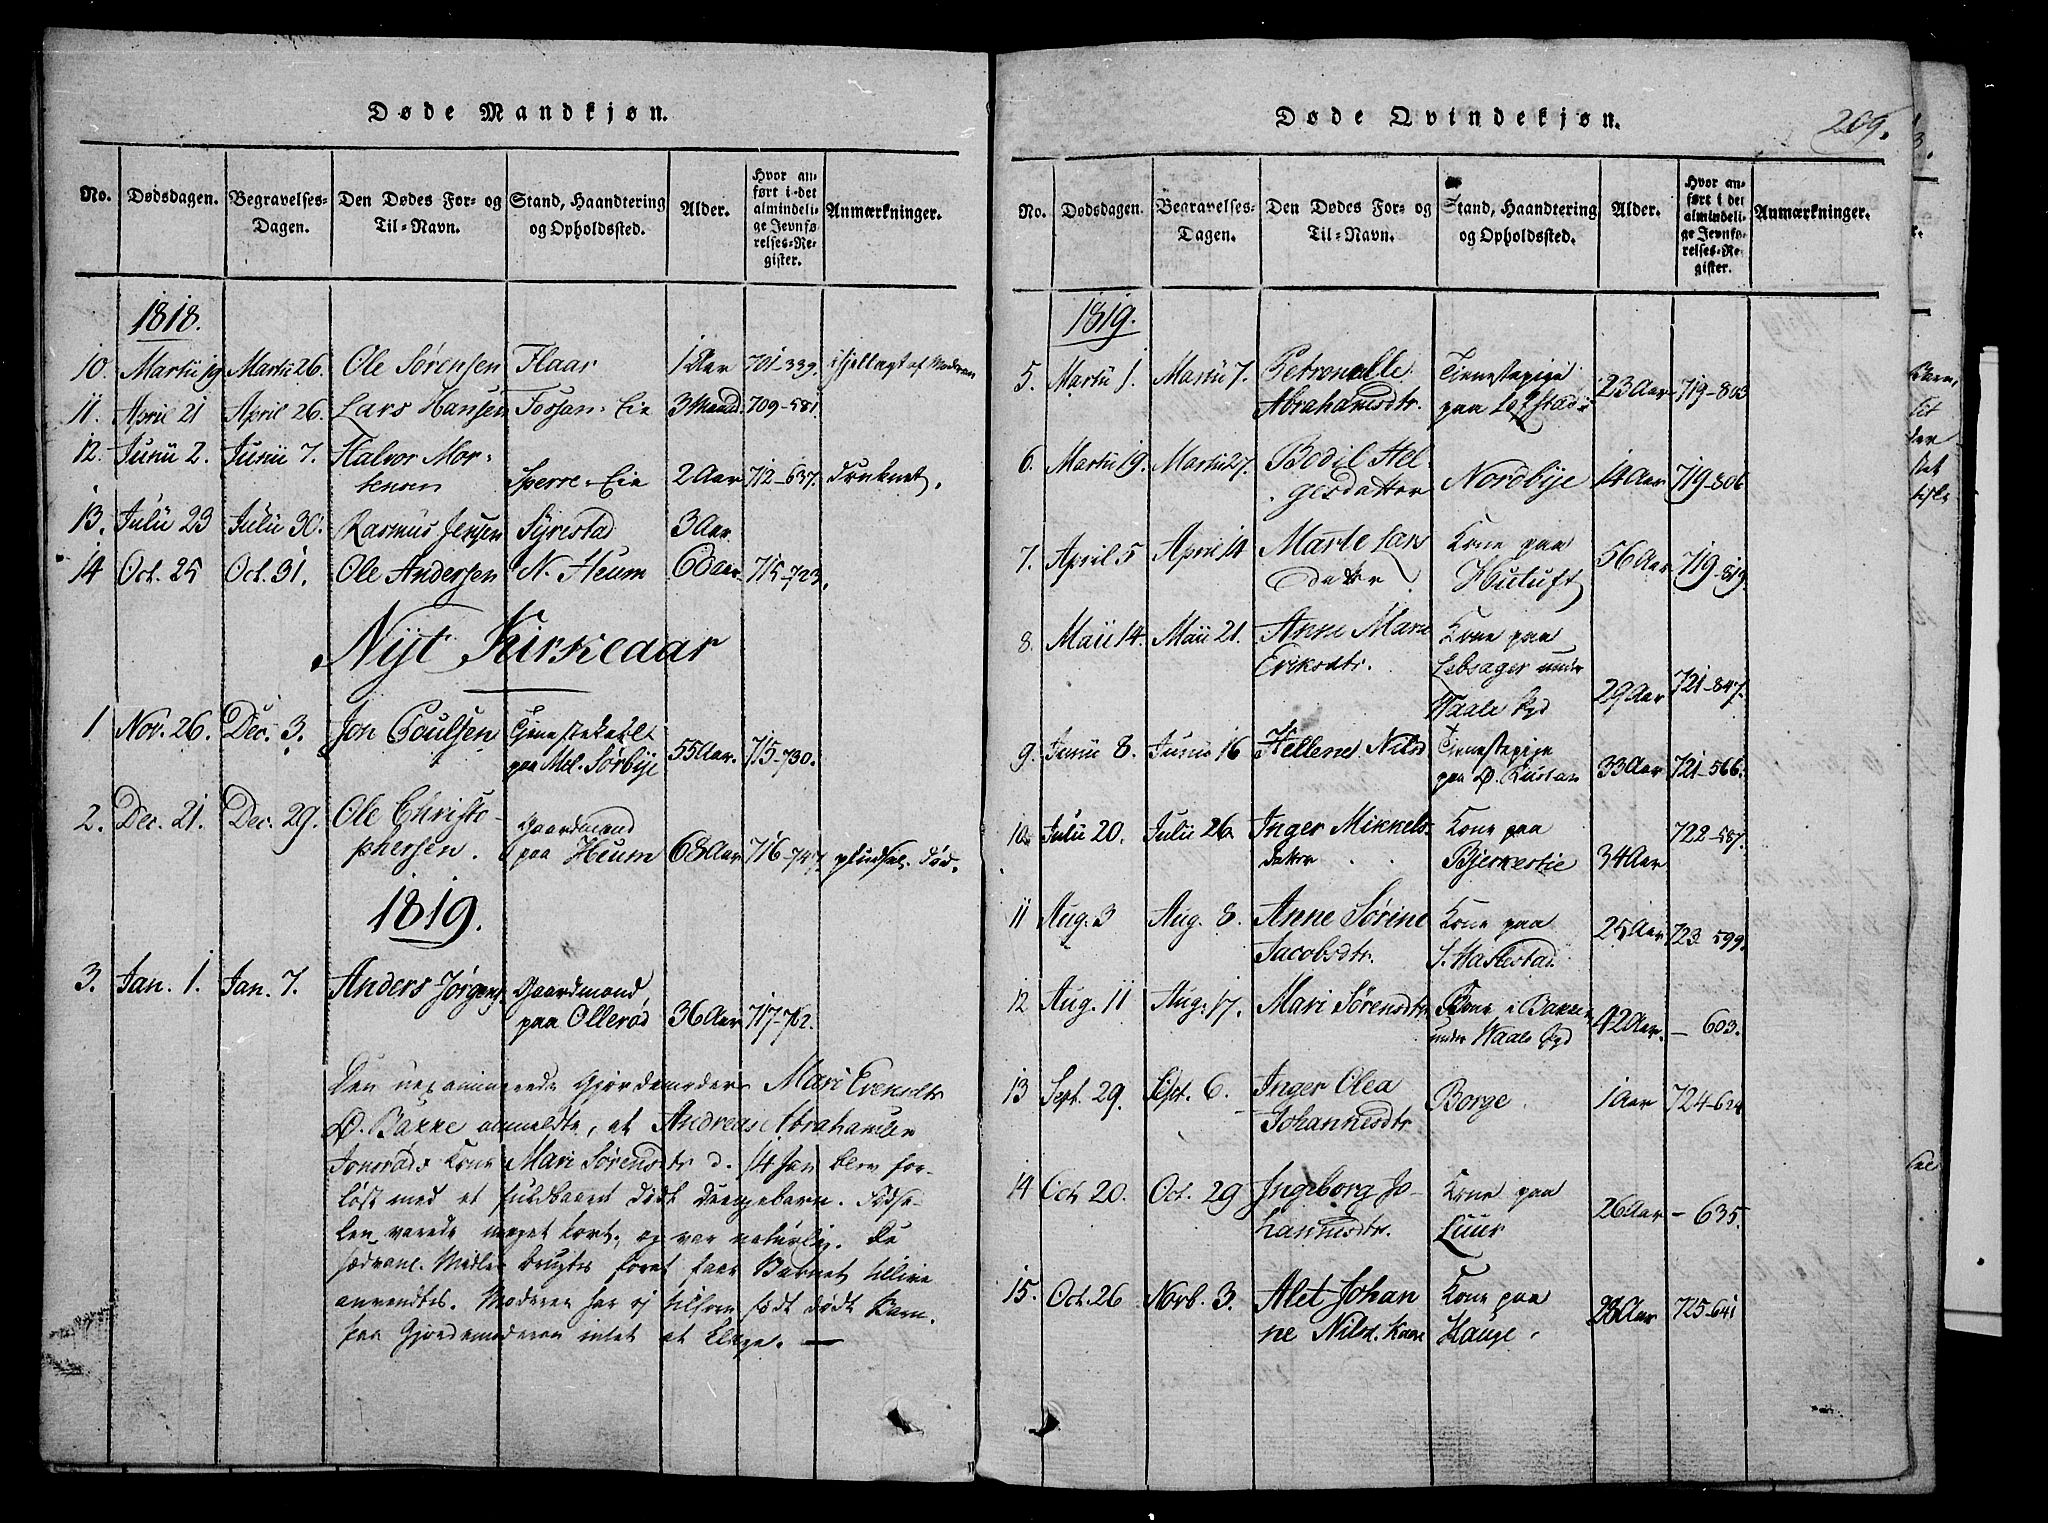 Døde Mandkjøn.
No. Dødsdagen. Begravelses-Dagen. Den Dødes For- og Til-Navn. Stand, Haandtering og Opholdssted. Alder. Hvor anført i det almindelige Jevnførelses-Register. Anmærkninger.
1818.
10. Martii 19 Martii 26. Ole Sørensen Flaar 1 Aar 701-339. ihjellagt af Moderen
11. April 21 April 26. Lars Hansen Fossan-Eie 3 Maand. 709-581.
12. Junii 2. Junii 7. Halvor Mor-
tensen Sperre-Eie 2 Aar 712-637. druknet.
13. Julii 23 Julii 30. Rasmus Jensen Syrestad 3 Aar
14 Oct. 25 Oct. 31. Ole Andersen N. Heum 60 Aar 715-723.
Nyt Kirkeaar
1 Nov. 26. Dec. 3. Jon Poulsen Tjenestekarl
paa Mel. Sørbye 55 Aar. 715-730.
2. Dec. 21. Dec. 29. Ole Christo-
phersen. Gaardmand
paa Heum 68 Aar 716-747. pludsel. Død.
1819.
3. Jan. 1. Jan. 7. Anders Jørgens. Gaardmand
paa Ollerød 36 Aar 717-762.
Den uexaminerede Gjordemoder Mari Evensdtr
Ø. Bakke anmeldte, at Andreas Abrahamsen
Jonsrøds Kone Mari Sørensdtr d. 14 Jan blev for-
løst med et fuldbaaret dødt Drengebarn. Fødse-
len varede meget kort, og var naturlig. De
sædvanl. Midler brugtes for at faae Barnet tillive
anvendtes. Moderen har ej tilforn født dødt Barn.
paa Gjordemoderen intet at klage. —
Døde Qvindekjøn.
209.
No. Dødsdagen. Begravelses-Dagen. Den Dødes For- og Til-Navn. Stand, Haandtering og Opholdssted. Alder. Hvor anført i det almindelige Jevnførelses-Register. Anmærkninger.
1819.
5. Martii 1. Martii 7. Petronelle
Abrahamsdtr. Tienestepige
paa Løfstad 23 Aar 719-803
6. Martii 19. Martii 27. Bodil Hel-
gesdatter Nordbye 14 Aar 719-806
7. April 5 April 14 Marte Lars
datter Kone paa
Huluft 56 Aar 719-819.
8. Maii 14. Maii 21. Anne Marie
Eriksdtr. Kone paa
Lebsager under
Waale Sgd 29 Aar 721-847.
9. Junii 8. Junii 16 Hellene Nilsd Tienestepige
paa Ø. Kustan 33 Aar 721-566.
10. Julii 20. Julii 26. Inger Mikkels-
datter Kone paa
Bjerkestie 34 Aar 722-587.
11 Aug. 3 Aug. 8. Anne Sørine
Jacobsdtr. Kone paa
S. Haslestad 25 Aar 723-599.
12 Aug. 11 Aug. 17. Mari Sørensdtr. Kone i Bakken
under Waale Sgd 42 Aar. — 603.
13 Sept. 29. Sept. 6. Inger Olea
Johannesdtr Borge 1 Aar 724-624
14 Oct. 20. Oct. 29 Ingeborg Jo-
hannesdtr. Kone paa
Luur 26 Aar — 635.
15. Oct. 26 Novb. 3. Alet Johan
ne Nilsd. Kone paa
Hauge. 28 Aar 725-641